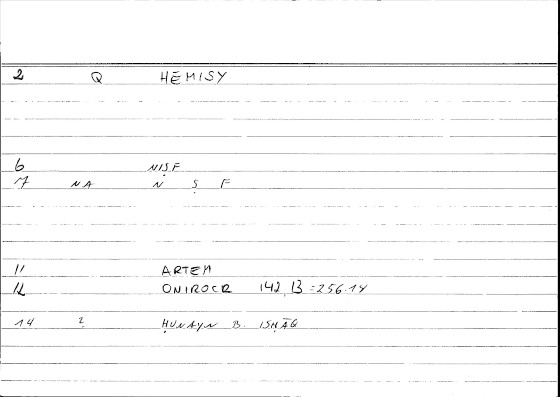 2 Q HĒMISY
6 NIṢF
7 NA N Ṣ F
11 ARTEM
12 ONIROCR 142, 13 = 256.14
14 2 ḤUNAYN B. ISḤĀQ